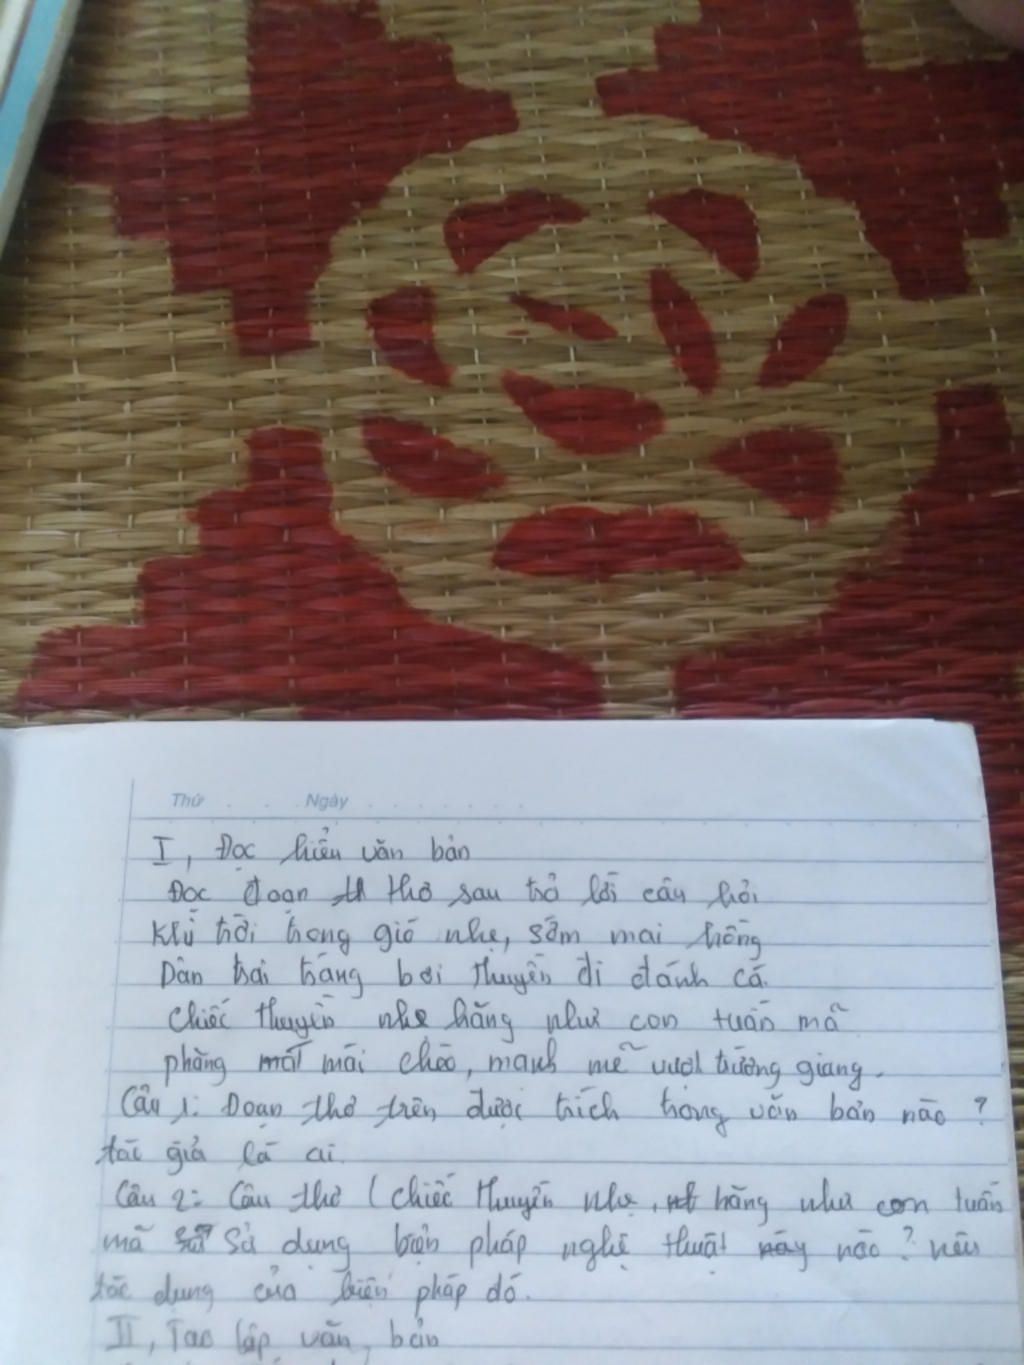 Thứ . . . Ngày . . . . . . .
I, Đọc hiểu văn bản
Đọc đoạn thơ sau trả lời câu hỏi
Khi trời trong gió nhẹ, sớm mai hồng
Dân trai tráng bơi thuyền đi đánh cá.
Chiếc thuyền nhẹ hăng như con tuấn mã
phăng mái chèo, mạnh mẽ vượt trường giang.
Câu 1: Đoạn thơ trên được trích trong văn bản nào ?
tác giả là ai.
Câu 2: Câu thơ (chiếc thuyền nhẹ, hăng như con tuấn
mã sử dụng biện pháp nghệ thuật nào? nêu
tác dụng của biện pháp đó.
II, Tạo lập văn bản